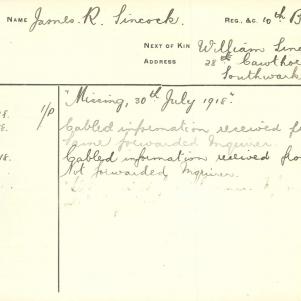 NAME James. R. Sincock. REG. &C. 10th B
NEXT OF KIN William Sinc
ADDRESS 28
Southwark
18. 1/P "Missing, 30th July 1918".
8. Cabled information received f
Same forwarded Inquirer.
18. Cabled information received fro
Not forwarded Inquirer.